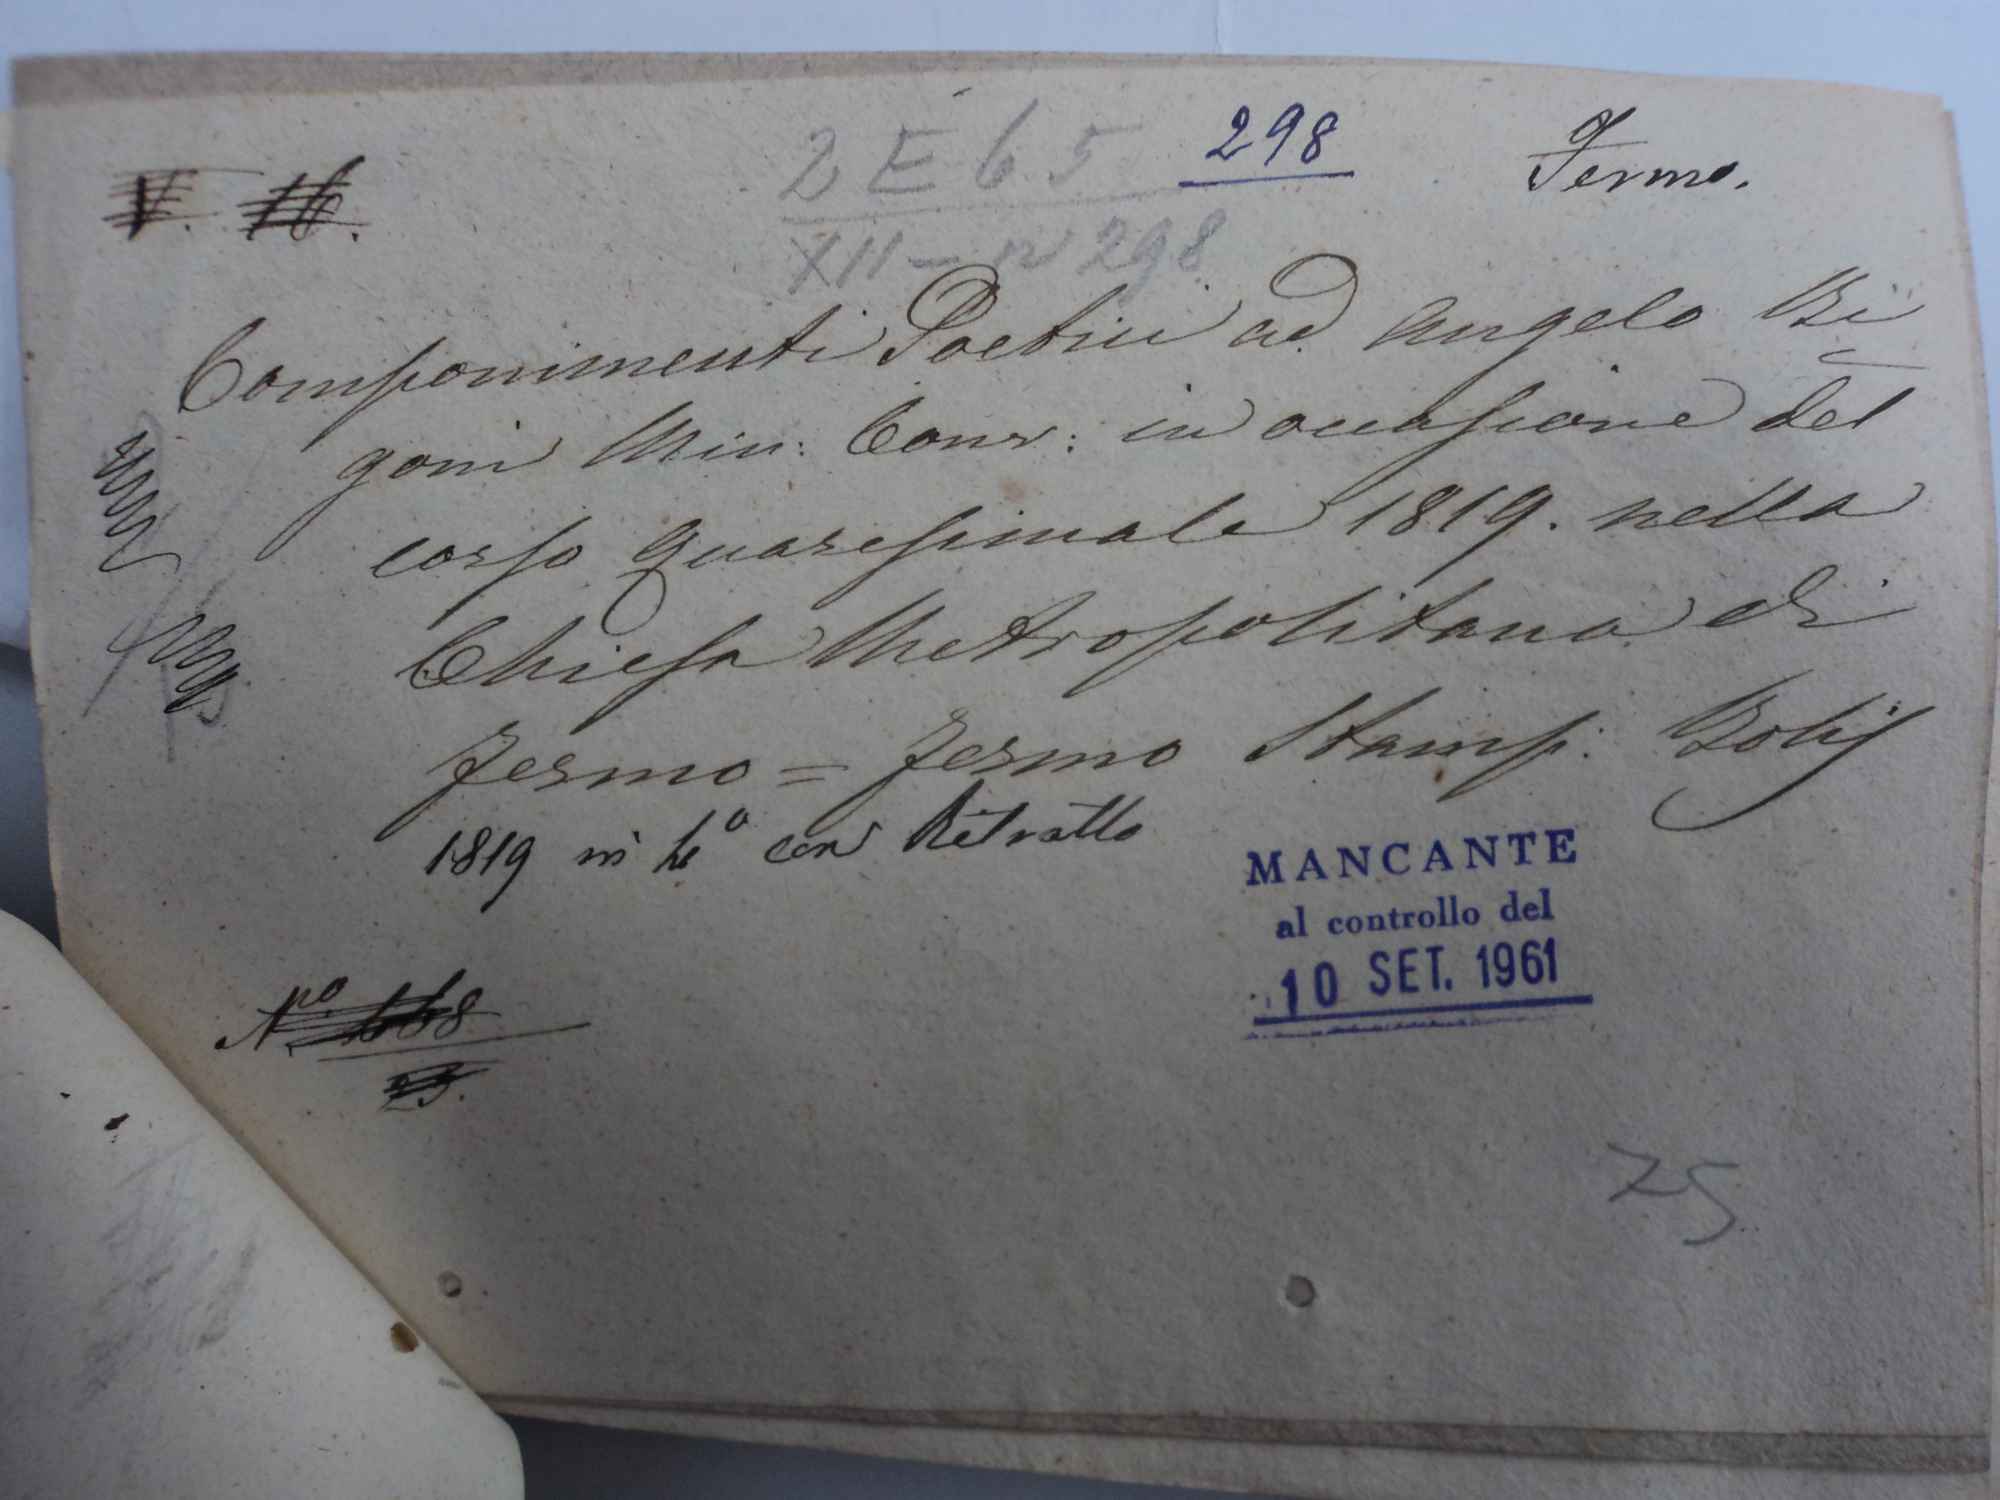 V. 16.
2 E 65
298
Fermo.
XII - n 298
Componimenti Poetici ad Angelo Bi
goni Min: Conv: in occasione del
corso Quaresimale 1819. nella
Chiesa Metropolitana di
Fermo = Fermo Stamp:
1819 in 4º con Ritratto
MANCANTE
al controllo del
10 SET. 1961
Nº 668
25.
25